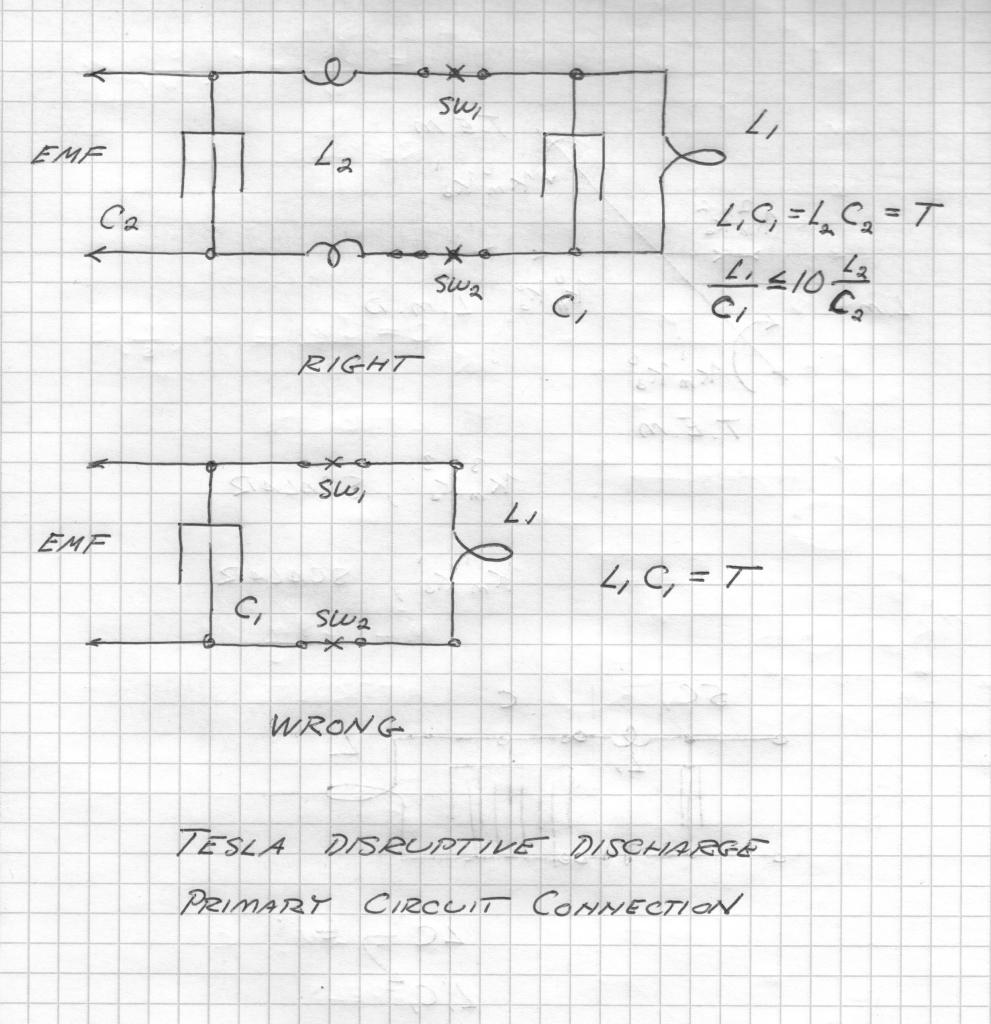 SW₁
L₁
EMF
L₂
C₂
L₁C₁ = L₂C₂ = T
SW₂
L₁/C₁ ≤ 10 L₂/C₂
C₁
RIGHT
SW₁
L₁
EMF
L₁ C₁ = T
C₁
SW₂
WRONG
TESLA DISRUPTIVE DISCHARGE
PRIMARY CIRCUIT CONNECTION